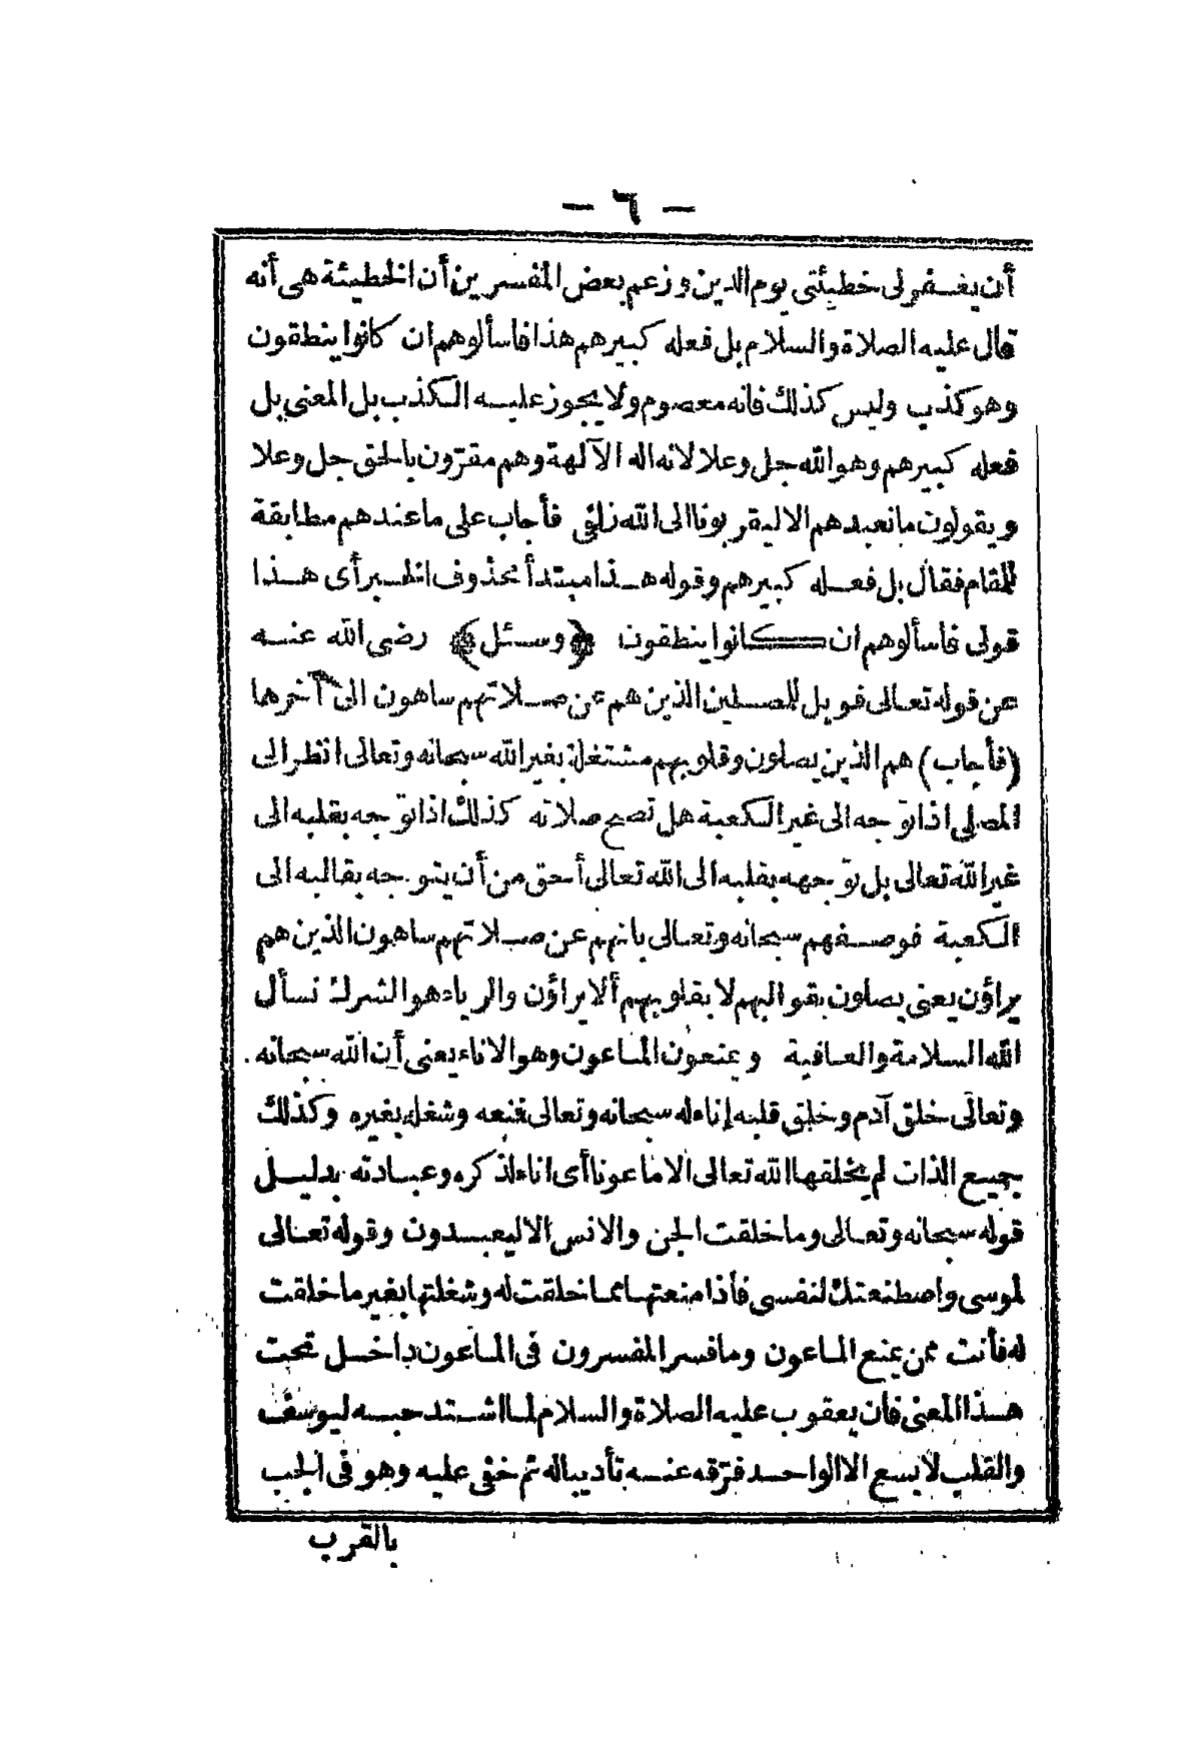 — ٦ —
أن يغفر لى خطيئتى يوم الدين وزعم بعض المفسرين أن الخطيئة هى أنه
قال عليه الصلاة والسلام بل فعله كبيرهم هذا فاسألوهم ان كانوا ينطقون
وهو كذب وليس كذلك فانه معصوم ولا يجوز عليه الكذب بل المعنى بل
فعله كبيرهم وهو الله جل وعلا لانه اله الآلهة وهم مقرّون بالحق جل وعلا
ويقولون ما نعبدهم الا ليقربونا الى الله زلفى فأجاب على ما عندهم مطابقة
للمقام فقال بل فعله كبيرهم وقوله هذا مبتدأ محذوف الخبر أى هذا
قولى فاسألوهم ان كانوا ينطقون ﴿وسئل﴾ رضى الله عنه
عن قوله تعالى فويل للمصلين الذين هم عن صلاتهم ساهون الى آخرها
(فأجاب) هم الذين يصلون وقلوبهم مشتغلة بغير الله سبحانه وتعالى انظر الى
المصلى اذا توجه الى غير الكعبة هل تصح صلاته كذلك اذا توجه بقلبه الى
غير الله تعالى بل توجهه بقلبه الى الله تعالى أحق من أن يتوجه بقالبه الى
الكعبة فوصفهم سبحانه وتعالى بانهم عن صلاتهم ساهون الذين هم
يراؤن يعنى يصلون بقوالبهم لا بقلوبهم ألا يراؤن والرياء هو الشرك نسأل
الله السلامة والعافية ويمنعون الماعون وهو الاناء يعنى أن الله سبحانه
وتعالى خلق آدم وخلق قلبه إناء له سبحانه وتعالى فمنعه وشغله بغيره وكذلك
جميع الذات لم يخلقها الله تعالى الا ماعونا أى اناء لذكره وعبادته بدليل
قوله سبحانه وتعالى وما خلقت الجن والانس الا ليعبدون وقوله تعالى
لموسى واصطنعتك لنفسى فأذا منعتها مما خلقت له وشغلتها بغير ما خلقت
له فأنت ممن يمنع الماعون وما فسر المفسرون فى الماعون داخل تحت
هذا المعنى فان يعقوب عليه الصلاة والسلام لما اشتد حبه ليوسف
والقلب لا يسع الا الواحد فرّقه عنه تأديبا له ثم خفى عليه وهو فى الجب
بالقرب